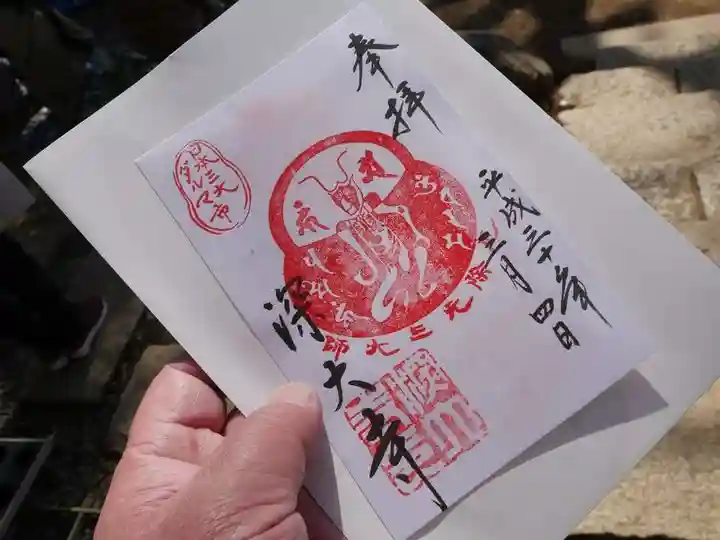 奉拝
平成三十年
三月四日
日本三大
ダルマ市
元三大師
深大寺